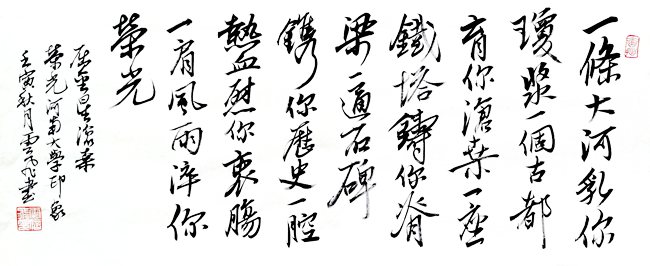 一條大河乳你
瓊漿一個古都
育你滄桑一座
鐵塔鑄你脊
梁一通石碑
鐫你歷史一腔
熱血慰你衷腸
一肩風雨淬你
榮光
屈金星滄桑
榮光河南大學印象
壬寅秋月雲飛書